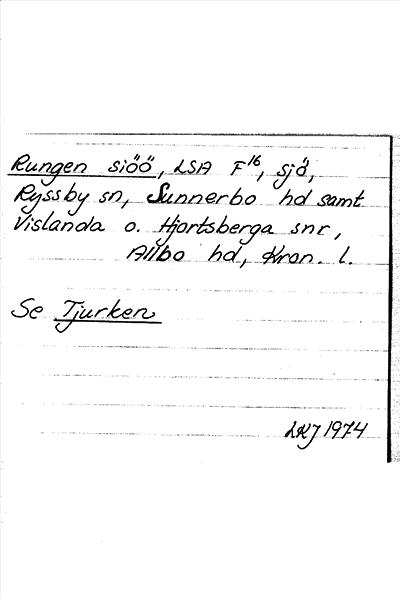 Rungen siöö, LSA F16, sjö,
Ryssby sn, Sunnerbo hd samt
Vislanda o. Hjortsberga snr,
Allbo hd, Kron. l.
Se Tjurken
LKJ 1974